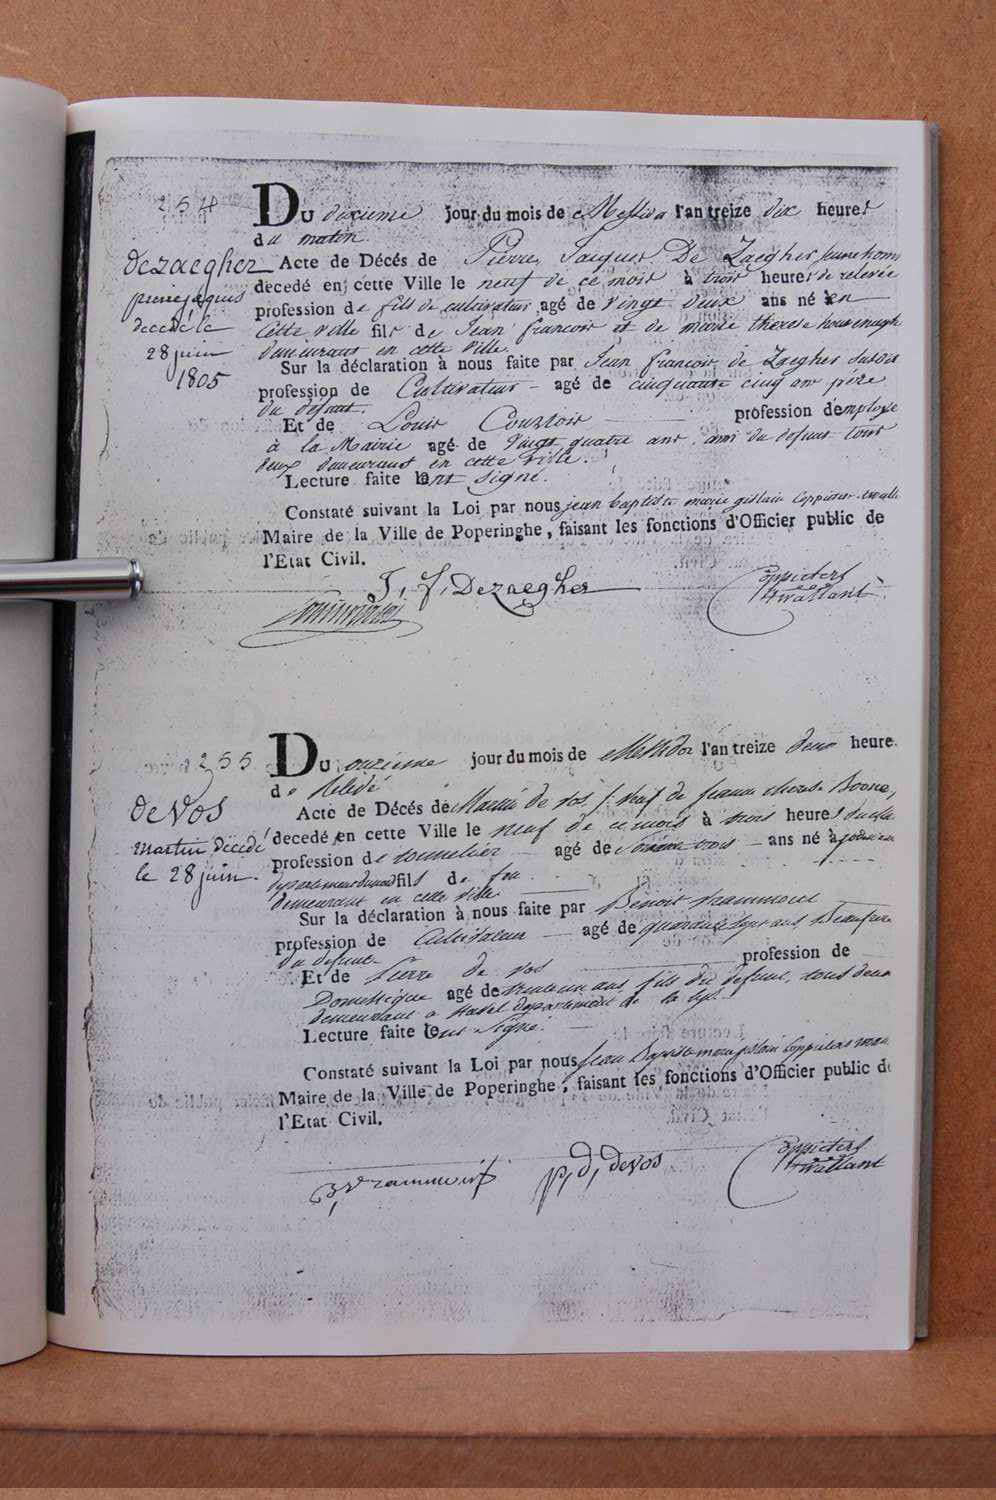 254
Du dixieme jour du mois de Messidor l'an treize dix heures
du matin.
dezaegher
pierre jaques
decedé le
28 juin
1805
Acte de Décés de Pierre Jacques De Zaegher jeune homme
decedé en cette Ville le neuf de ce mois à trois heures de relevée
profession de fils de cultivateur agé de vingt deux ans né en
cette ville fils de Jean francois et de marie therese
demeurant en cette ville.
Sur la déclaration à nous faite par Jean francois de Zaegher
profession de Cultivateur agé de cinquante cinq ans père
du defunt.
Et de Louis profession d'employe
à la Mairie agé de vingt quatre ans, ami du defunt tous
deux demeurant en cette ville.
Lecture faite ont signé.
Constaté suivant la Loi par nous jean baptiste marie gislain Coppieters
Maire de la Ville de Poperinghe, faisant les fonctions d'Officier public de
l'Etat Civil.
J, f, Dezaegher Coppieters
t'wallant
255
Du onzieme jour du mois de Messidor l'an treize deux heures
de Relevé
de Vos
martin decedé
le 28 juin.
Acte de Décés de Martin de vos, veuf de jeanne
decedé en cette Ville le neuf de ce mois à trois heures
profession de tonnelier agé de soixante trois ans né à
fils de feu
demeurant en cette ville
Sur la déclaration à nous faite par Benoit
profession de Cultivateur agé de quarante sept ans, Beaufrere
du defunt
Et de Pierre de vos profession de
Domestique agé de trente un ans, fils du defunt, tous deux
demeurant a departement de la Lys.
Lecture faite ont signé.
Constaté suivant la Loi par nous Jean Baptiste marie gislain Coppieters
Maire de la Ville de Poperinghe, faisant les fonctions d'Officier public de
l'Etat Civil.
p, d, devos Coppieters
t'wallant